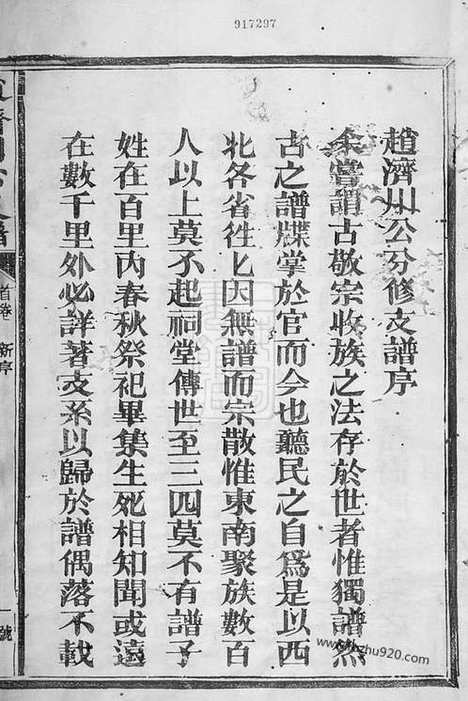 917297
趙濟川公分修支譜序
余嘗謂古敬宗收族之法存於世者惟獨譜然
古之譜牒掌於官而今也聽民之自爲是以西
北各省徃乚因無譜而宗散惟東南聚族數百
人以上莫不起祠堂傳世至三四莫不有譜子
姓在百里內春秋祭祀畢集生死相知聞或遠
在數千里外必詳著支系以歸於譜偶落不載
首卷
新序
一號
www.jiapu920.com